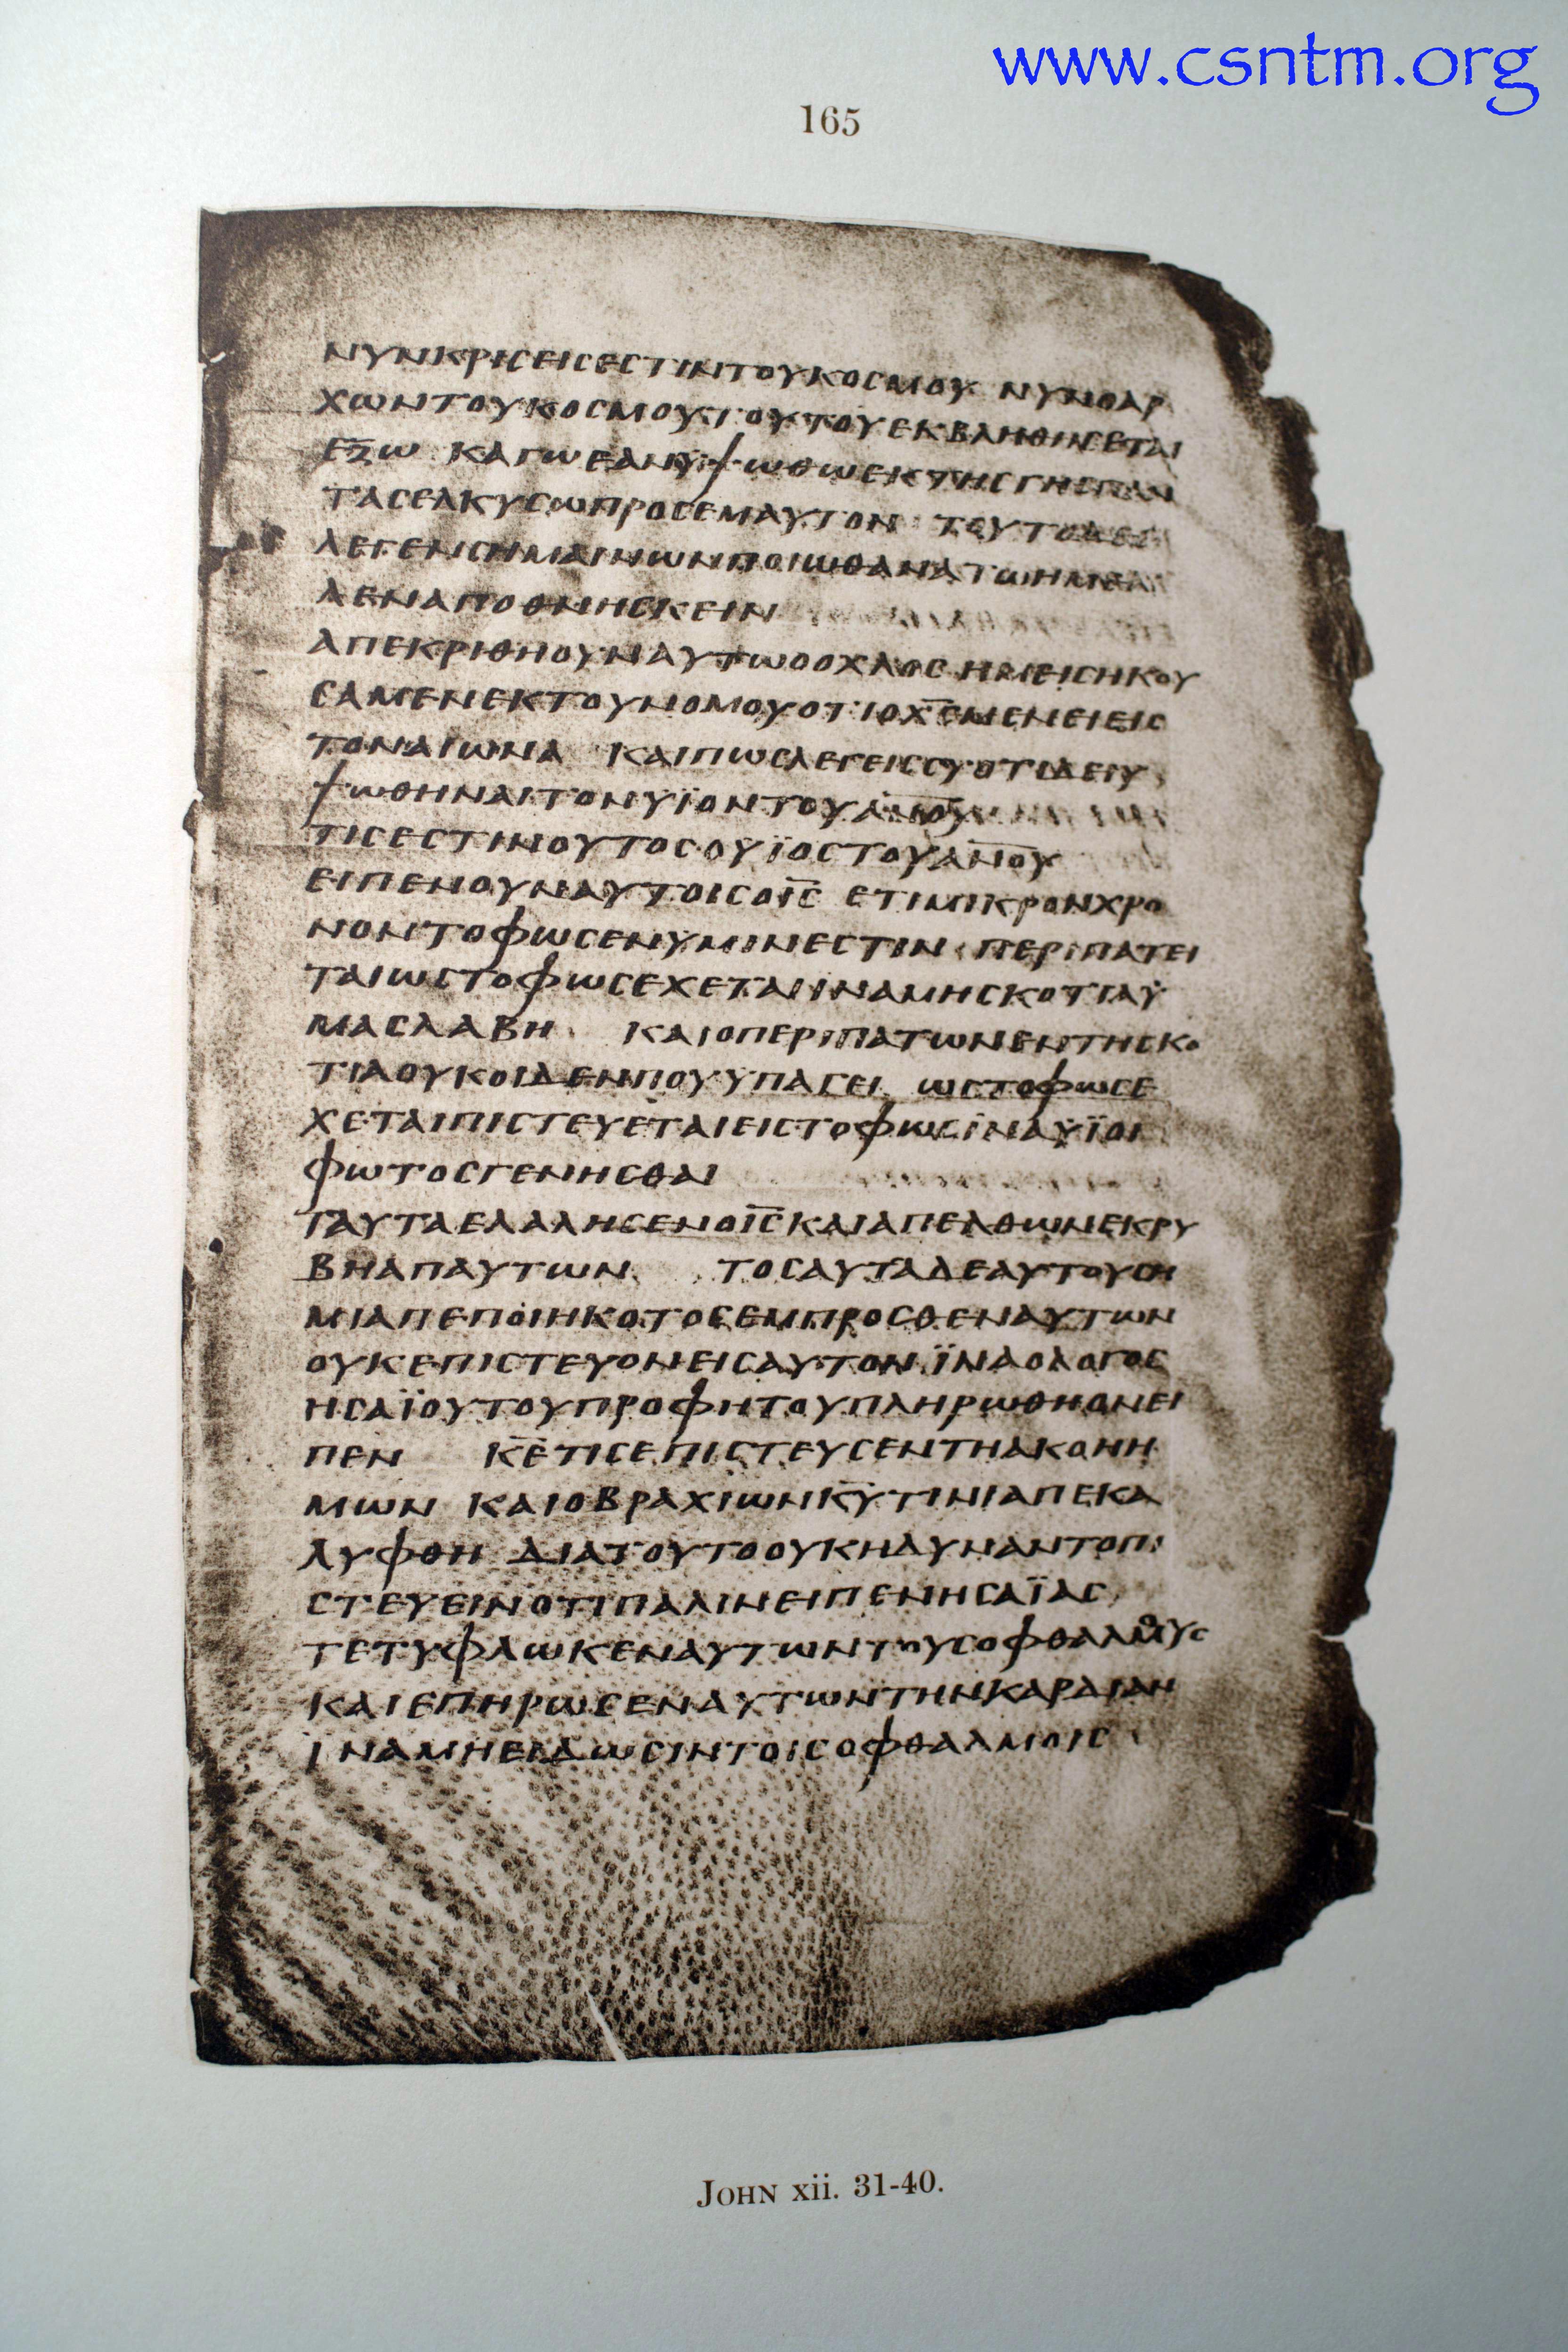 www.csntm.org
165
ΝΥΝΚΡΙCΕΙCΕCΤΙΝΤΟΥΚΟCΜΟΥ ΝΥΝΟΑΡ
ΧΩΝΤΟΥΚΟCΜΟΥΤΟΥΤΟΥΕΚΒΛΗΘΗCΕΤΑΙ
ΕΞΩ ΚΑΓΩΕΑΝΥΨΩΘΩΕΚΤΗCΓΗCΠΑΝ
ΤΑCΕΛΚΥCΩΠΡΟCΕΜΑΥΤΟΝ ΤΟΥΤΟΔΕ
ΛΕΓΕΝCΗΜΑΙΝΩΝΠΟΙΩΘΑΝΑΤΩΗΜΕΛ
ΛΕΝΑΠΟΘΝΗCΚΕΙΝ
ΑΠΕΚΡΙΘΗΟΥΝΑΥΤΩΟΟΧΛΟC ΗΜΕΙCΗΚΟΥ
CΑΜΕΝΕΚΤΟΥΝΟΜΟΥΟΤΙΟΧ̅C̅ΜΕΝΕΙΕΙC
ΤΟΝΑΙΩΝΑ ΚΑΙΠΩCΛΕΓΕΙCCΥΟΤΙΔΕΙΥ
ΨΩΘΗΝΑΙΤΟΝΥΪΟΝΤΟΥΑ̅Ν̅Ο̅Υ̅
ΤΙCΕCΤΙΝΟΥΤΟC ΟΥΪΟCΤΟΥΑ̅Ν̅Ο̅Υ̅
ΕΙΠΕΝΟΥΝΑΥΤΟΙCΟΙ̅C̅ ΕΤΙΜΙΚΡΟΝΧΡΟ
ΝΟΝΤΟΦΩCΕΝΥΜΙΝΕCΤΙΝ ΠΕΡΙΠΑΤΕΙ
ΤΑΙΩCΤΟΦΩCΕΧΕΤΑΙΙΝΑΜΗCΚΟΤΙΑΫ
ΜΑCΛΑΒΗ ΚΑΙΟΠΕΡΙΠΑΤΩΝΕΝΤΗCΚΟ
ΤΙΑΟΥΚΟΙΔΕΝΠΟΥΫΠΑΓΕΙ ΩCΤΟΦΩCΕ
ΧΕΤΑΙΠΙCΤΕΥΕΤΑΙΕΙCΤΟΦΩCΪΝΑΥΪΟΙ
ΦΩΤΟCΓΕΝΗCΘΑΙ
ΤΑΥΤΑΕΛΑΛΗCΕΝΟΙ̅C̅ΚΑΙΑΠΕΛΘΩΝΕΚΡΥ
ΒΗΑΠΑΥΤΩΝ ΤΟCΑΥΤΑΔΕΑΥΤΟΥCΗ
ΜΙΑΠΕΠΟΙΗΚΟΤΟCΕΜΠΡΟCΘΕΝΑΥΤΩΝ
ΟΥΚΕΠΙCΤΕΥΟΝΕΙCΑΥΤΟΝ ΪΝΑΟΛΟΓΟC
ΗCΑΪΟΥΤΟΥΠΡΟΦΗΤΟΥΠΛΗΡΩΘΗΟΝΕΙ
ΠΕΝ Κ̅Ε̅ΤΙCΕΠΙCΤΕΥCΕΝΤΗΑΚΟΗΗ
ΜΩΝ ΚΑΙΟΒΡΑΧΙΩΝΚ̅Υ̅ΤΙΝΙΑΠΕΚΑ
ΛΥΦΘΗ ΔΙΑΤΟΥΤΟΟΥΚΗΔΥΝΑΝΤΟΠΙ
CΤΕΥΕΙΝΟΤΙΠΑΛΙΝΕΙΠΕΝΗCΑΪΑC
ΤΕΤΥΦΛΩΚΕΝΑΥΤΩΝΤΟΥCΟΦΘΑΛΜΟΥC
ΚΑΙΕΠΗΡΩCΕΝΑΥΤΩΝΤΗΝΚΑΡΔΙΑΝ
ΪΝΑΜΗΕΙΔΩCΙΝΤΟΙCΟΦΘΑΛΜΟΙC
JOHN xii. 31-40.